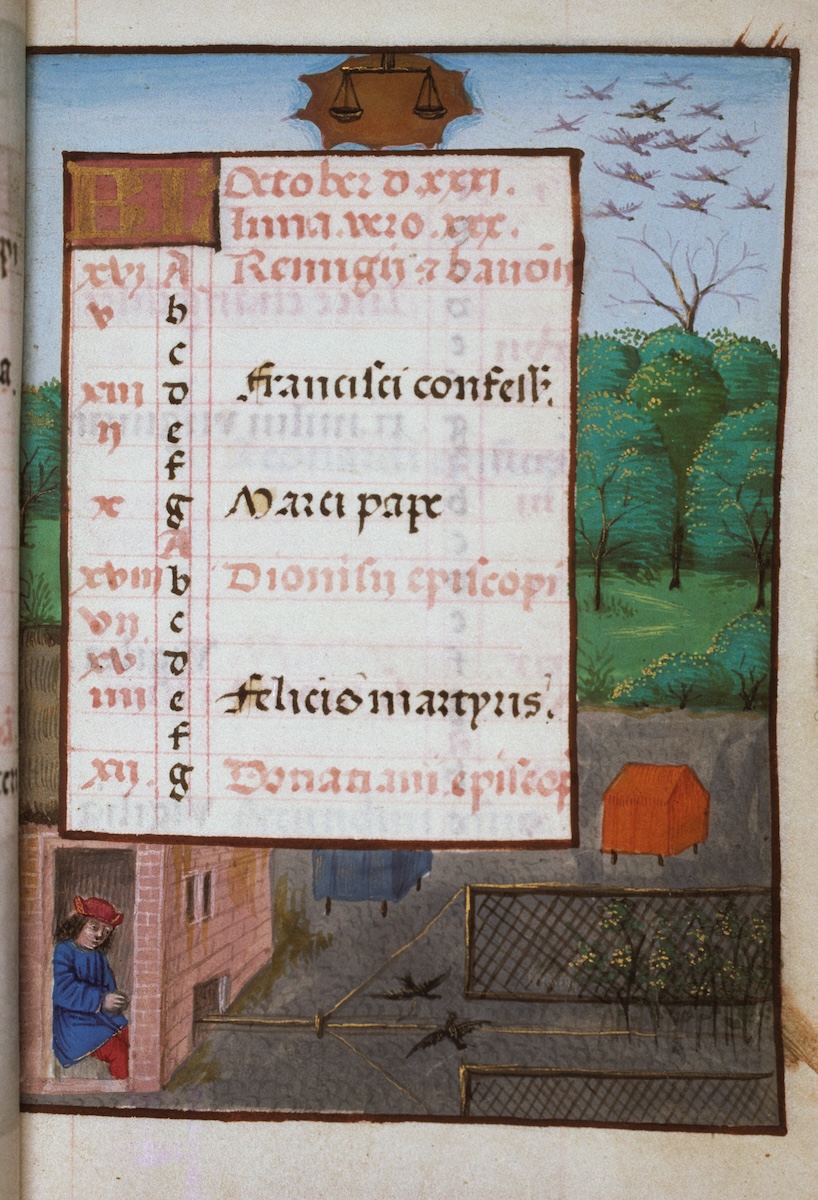 KL October d xxxi.
luna vero xxx.
xvi A Remigii ⁊ bavonis
v b
c
xiii d Francisci confess.
ii e
f
x g Marci pape
A
xviii b Dionisii episcopi
vii c
xv d
iiii e Felicis martyris.
f
xii. g Donatiani episcop